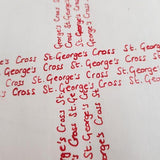 George's Cross
St. George's
Cross St.
's Cross St. George's Cross St. George's
St. George's Cross St. George's Cross
George's Cross St. George's Cross St.
Cross St. George's Cross St. George's
George's Cross St.
St. George's Cross
Cross St. George's